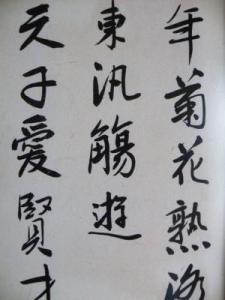 年菊花熟洛
東汎觴遊
天子愛賢才